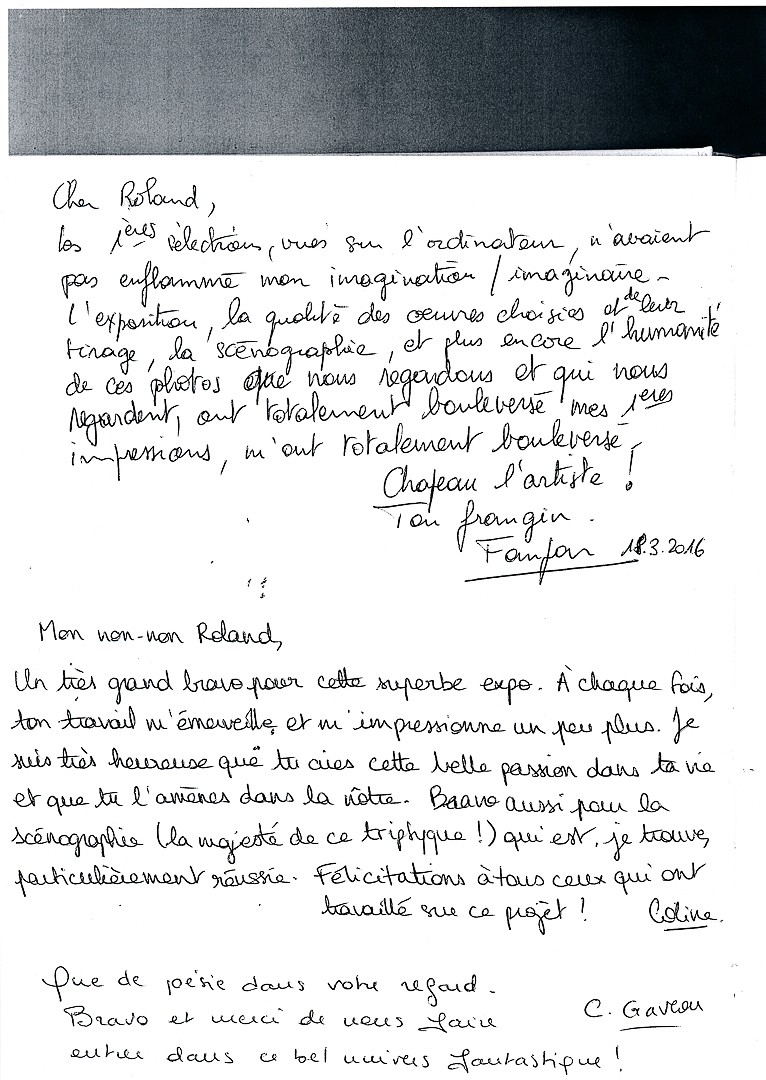 Cher Roland,
les 1ères sélections, vues sur l'ordinateur, n'avaient
pas enflammé mon imagination / imaginaire -
L'exposition, la qualité des oeuvres choisies et de leur
tirage, la scénographie, et plus encore l'humanité
de ces photos que nous regardons et qui nous
regardent, ont totalement bouleversé mes 1eres
impressions, m'ont totalement bouleversé,
Chapeau l'artiste !
Ton frangin.
Fanfan 18.3.2016
Mon non-non Roland,
Un très grand bravo pour cette superbe expo. À chaque fois,
ton travail m'émerveille, et m'impressionne un peu plus. Je
suis très heureuse que tu aies cette belle passion dans ta vie
et que tu l'amènes dans la nôtre. Bravo aussi pour la
scénographie (la majesté de ce triptyque !) qui est, je trouve,
particulièrement réussie. Félicitations à tous ceux qui ont
travaillé sur ce projet ! Coline.
Que de poésie dans votre regard.
Bravo et merci de nous faire C. Gaveau
entrer dans ce bel univers fantastique !